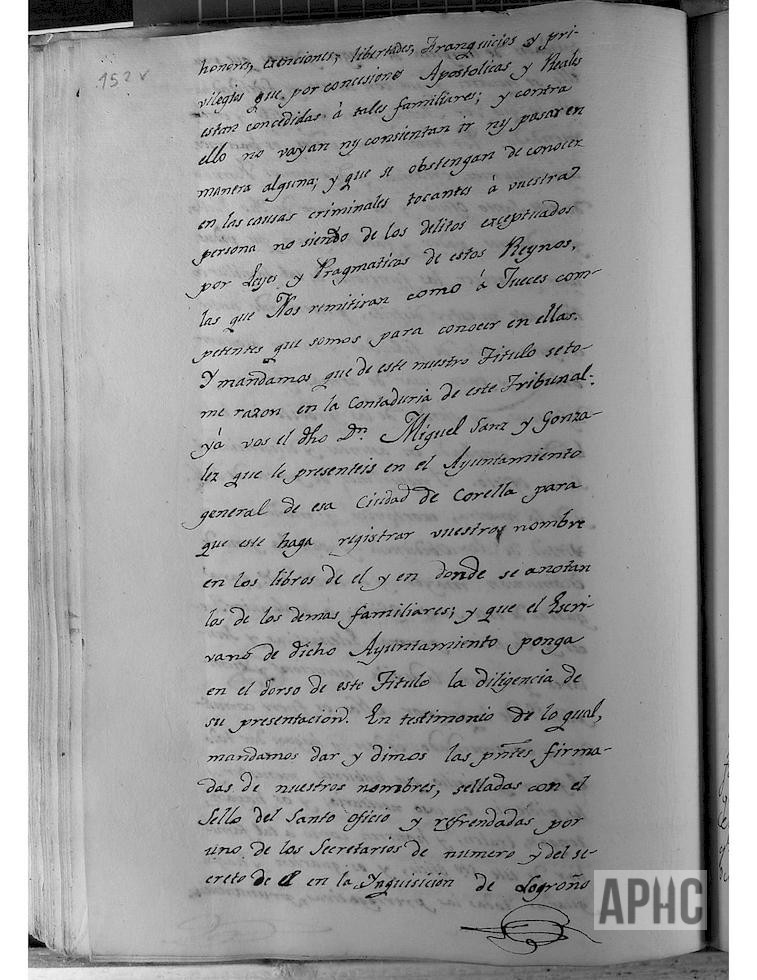 152 v
honores, exenciones, libertades, Franquicias y pri-
vilegios que por concesiones Apostolicas y Reales
estan concedidas à tales familiares; y contra
ello no vayan ny consientan ir ny pasar en
manera alguna; y que se obstengan de conocer
en las causas criminales tocantes à vuestra
persona no siendo de los delitos exceptuados
por Leyes y Pragmaticas de estos Reynos,
las que Nos remitiran como à Jueces com-
petentes que somos para conocer en ellas.
Y mandamos que de este nuestro Titulo se to-
me razon en la Contaduria de este Tribunal.
yà vos el dho Dn. Miguel Sanz y Gonza-
lez que le presenteis en el Ayuntamiento
general de esa Ciudad de Corella para
que este haga registrar vuestros nombre
en los libros de el y en donde se anotan
los de los demas familiares; y que el Escri-
vano de dicho Ayuntamiento ponga
en el dorso de este Titulo la diligencia de
su presentacion. En testimonio de lo qual,
mandamos dar y dimos las pñtes firma-
das de nuestros nombres, selladas con el
Sello del Santo oficio y refrendadas por
uno de los Secretarios de numero y del se-
creto de el en la Ynquisicion de Logroño
APHC